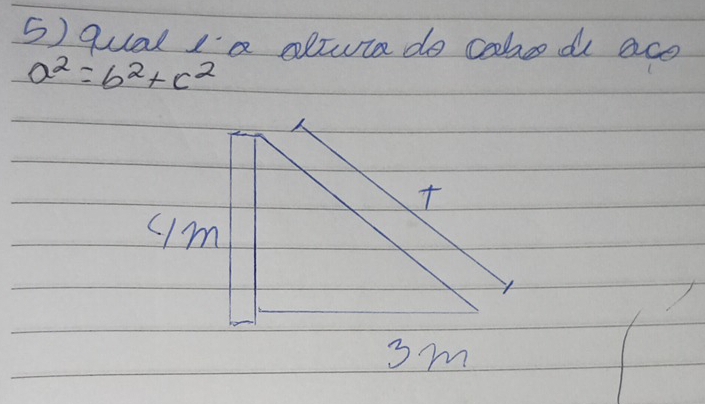 5) Qual é a altura do cabo de aço
a² = b² + c²
4m
T
3m